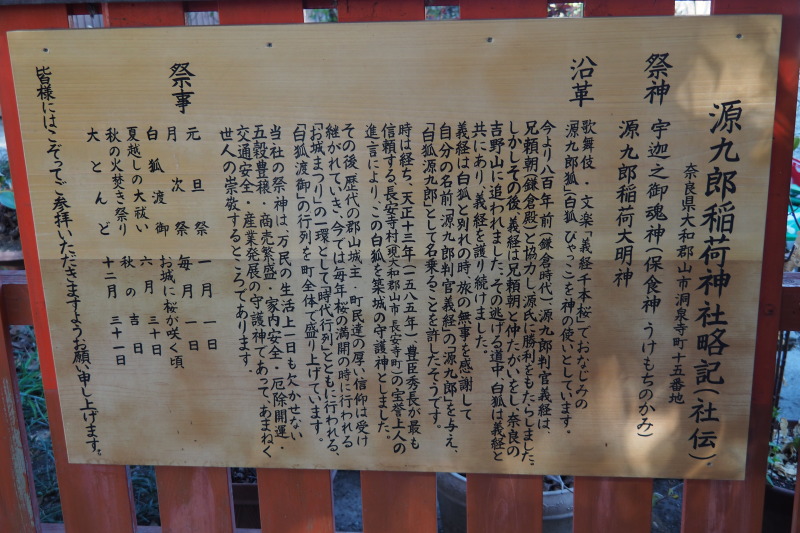 源九郎稲荷神社略記(社伝)
奈良県大和郡山市洞泉寺町十五番地
祭神 宇迦之御魂神(保食神 うけもちのかみ)
源九郎稲荷大明神
沿革
歌舞伎・文楽「義経千本桜」でおなじみの
「源九郎狐」(白狐 びゃっこ)を神の使いとしています。
今より八百年前(鎌倉時代)、源九郎判官義経は、
兄頼朝(鎌倉殿)と協力し、源氏に勝利をもたらしました。
しかしその後、義経は兄頼朝と仲たがいをし、奈良の
吉野山に追われました。その逃げる道中、白狐は義経と
共にあり、義経を護り続けました。
義経は白狐と別れの時、旅の無事を感謝して
自分の名前「源九郎判官義経」の「源九郎」を与え、
「白狐源九郎」として名乗ることを許したそうです。
時は経ち、天正十三年(一五八五年)、豊臣秀長が最も
信頼する、長安寺村(現大和郡山市・長安寺町)の宝誉上人の
進言により、この白狐を築城の守護神としました。
その後、歴代の郡山城主・町民達の厚い信仰は受け
継がれていき、今では毎年、桜の満開の時に行われる
「お城まつり」の一環として「時代行列」とともに行われる、
「白狐渡御」の行列を町全体で盛り上げています。
当社の祭神は、万民の生活上一日も欠かせない
五穀豊穣・商売繁盛・家内安全・厄除開運・
交通安全・産業発展の守護神であって、あまねく
世人の崇敬するところであります。
祭事
元旦祭 一月一日
月次祭 毎月一日
白狐渡御 お城に桜が咲く頃
夏越しの大祓い 六月三十日
秋の火焚き祭り 秋の吉日
大とんど 十二月三十一日
皆様にはこぞってご参拝いただきますようお願い申し上げます。